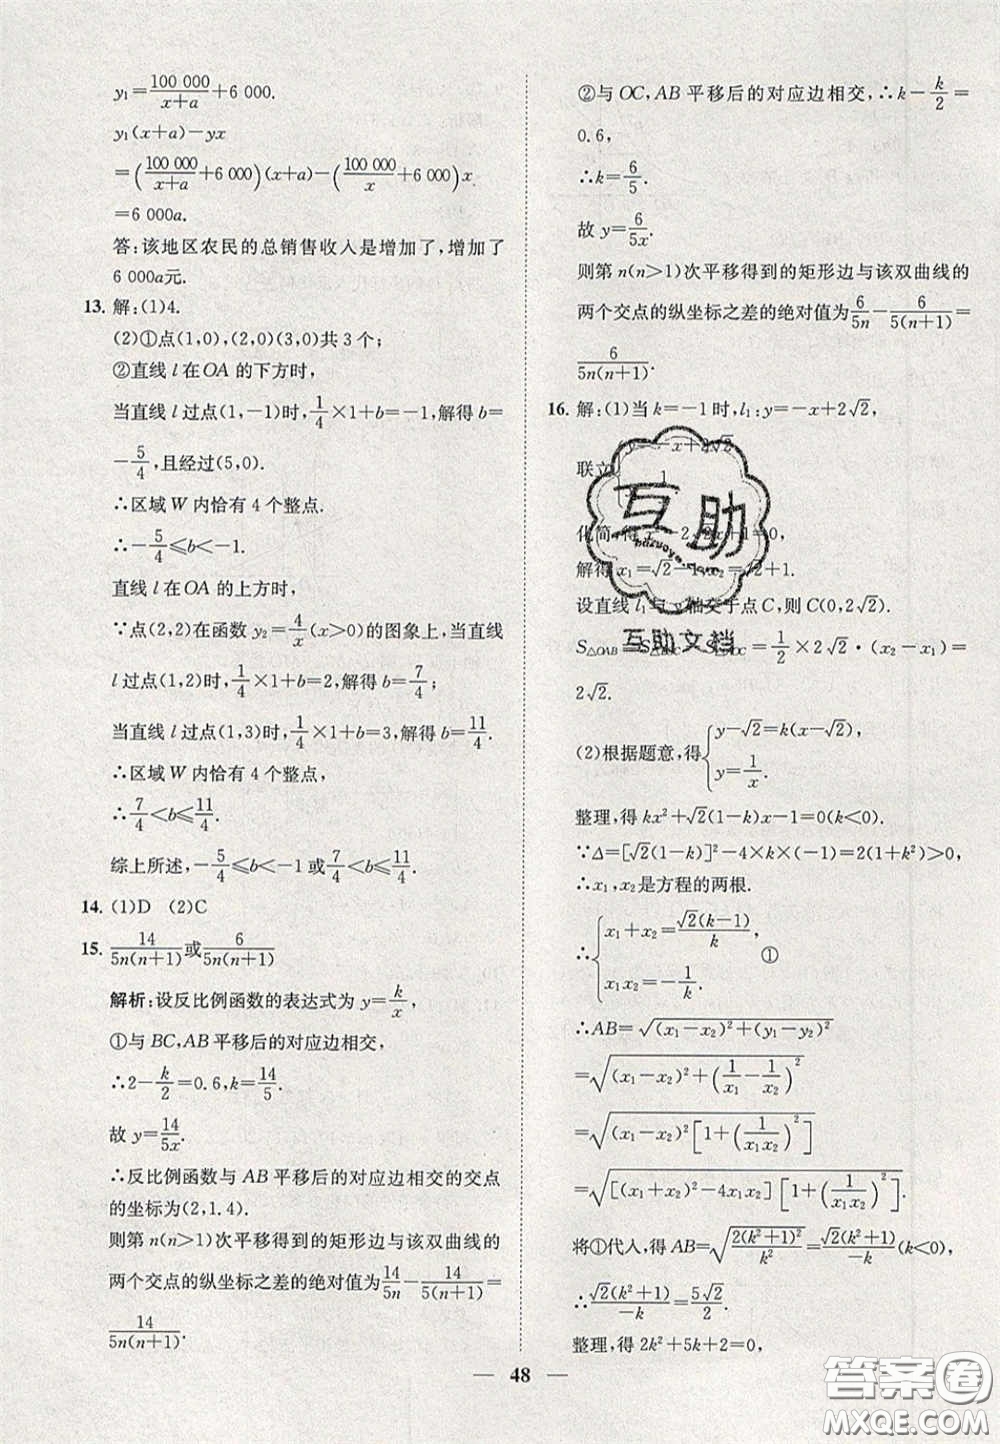 y₁=100 000/(x+a)+6 000.
y₁(x+a)-yx
=(100 000/(x+a)+6 000)(x+a)-(100 000/x+6 000)x
=6 000a.
答:该地区农民的总销售收入是增加了,增加了
6 000a元.
13. 解:(1)4.
(2)①点(1,0),(2,0)(3,0)共3个;
②直线l在OA的下方时,
当直线l过点(1,-1)时,1/4×1+b=-1,解得b=
-5/4,且经过(5,0).
∴区域W内恰有4个整点.
∴-5/4≤b<-1.
直线l在OA的上方时,
∵点(2,2)在函数y₂=4/x(x>0)的图象上,当直线
l过点(1,2)时,1/4×1+b=2,解得b=7/4;
当直线l过点(1,3)时,1/4×1+b=3,解得b=11/4.
∴区域W内恰有4个整点,
∴7/4<b≤11/4.
综上所述,-5/4≤b<-1或7/4<b≤11/4.
14. (1)D (2)C
15. 14/(5n(n+1))或6/(5n(n+1))
解析:设反比例函数的表达式为y=k/x,
①与BC,AB平移后的对应边相交,
∴2-k/2=0.6,k=14/5.
故y=14/(5x).
∴反比例函数与AB平移后的对应边相交的交点
的坐标为(2,1.4).
则第n(n>1)次平移得到的矩形边与该双曲线的
两个交点的纵坐标之差的绝对值为14/(5n)-14/(5(n+1))=
14/(5n(n+1)).
②与OC,AB平移后的对应边相交,∴k-k/2=
0.6,
∴k=6/5.
故y=6/(5x).
则第n(n>1)次平移得到的矩形边与该双曲线的
两个交点的纵坐标之差的绝对值为6/(5n)-6/(5(n+1))=
6/(5n(n+1)).
16. 解:(1)当k=-1时,l₁:y=-x+2√2,
联立 -x+2√2
1
化简,得x²-2√2x+1=0,
解得x₁=√2-1,x₂=√2+1.
设直线l₁与y轴交于点C,则C(0,2√2).
S△OAB= =1/2×2√2·(x₂-x₁)=
2√2.
(2)根据题意,得{y-√2=k(x-√2),
y=1/x.
整理,得kx²+√2(1-k)x-1=0(k<0).
∵Δ=[√2(1-k)]²-4×k×(-1)=2(1+k²)>0,
∴x₁,x₂是方程的两根.
∴{x₁+x₂=√2(k-1)/k,
x₁x₂=-1/k. ①
∴AB=√((x₁-x₂)²+(y₁-y₂)²)
=√((x₁-x₂)²+(1/x₁-1/x₂)²)
=√((x₁-x₂)²[1+(1/(x₁x₂))²])
=√([(x₁+x₂)²-4x₁x₂][1+(1/(x₁x₂))²]).
将①代入,得AB=√(2(k²+1)²/k²)=√2(k²+1)/(-k)(k<0),
∴√2(k²+1)/(-k)=5√2/2.
整理,得2k²+5k+2=0,
— 48 —
互助
互助文档
答案圈
MXQE.COM